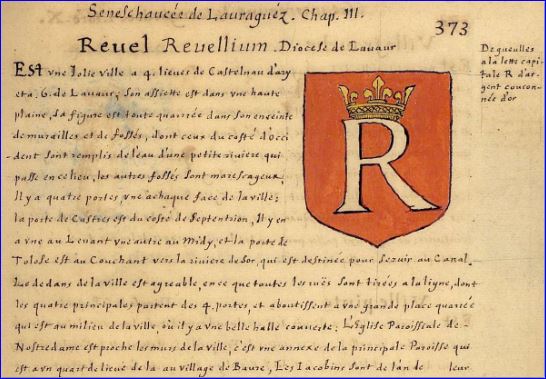 Seneschaucée de Lauraguéz. Chap. III.
373
Revel Revellium. Diocese de Lavaur
De gueulles
a la lettre capi
tale R d'ar
gent couron
née d'or
Est une Jolie ville a 4. lieues de Castelnau d'ary
et a .6. de Lavaur; Son assiette est dans une haute
plaine, sa figure est toute quarrée dans son enseinte
de murailles et de fossés, dont ceux du costé d'Occi
dent sont remplis de l'eau d'une petite riviere qui
passe en ce lieu, les autres fossés sont marescageux.
Il y a quatre portes, une a chaque face de la ville:
la porte de Castres est du costé de Septentrion, Il y en
a une au Levant une autre au Midy, et la porte de
Tolose est au Couchant vers la riviere de Sor, qui est destinée pour servir au Canal.
Le dedans de la ville est agreable, en ce que toutes les rues sont tirées a la ligne, dont
les quatre principales partent des 4. portes, et aboutissent a une grande place quarrée
qui est au milieu de la ville, où il y a une belle halle couverte. L'Eglise Paroissiale de
Nostre dame est proche les murs de la ville, c'est une annexe de la principale Paroisse qui
est a un quart de lieue de la au village de Vaure, Les Jacobins sont de l'an de leur
R